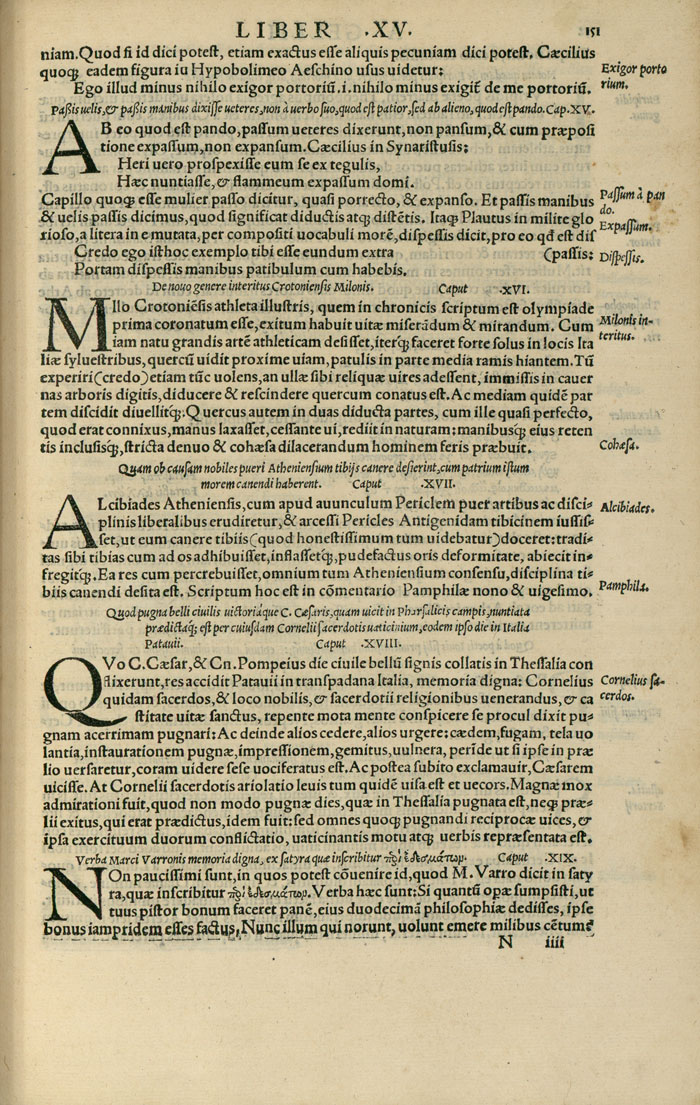 LIBER .XV. 151
niam. Quod si id dici potest, etiam exactus esse aliquis pecuniam dici potest. Cæcilius
quoq; eadem figura iu Hypobolimeo Aeschino usus uidetur:
Exigor porto
rium.
Ego illud minus nihilo exigor portoriũ.i.nihilo minus exigit̃ de me portoriũ.
Paßis uelis, & paßis manibus dixisse ueteres, non à uerbo suo, quod est patior, sed ab alieno, quod est pando. Cap. XV.
AB eo quod est pando, passum ueteres dixerunt, non pansum, & cum præposi
tione expassum, non expansum. Cæcilius in Synaristusis:
Heri uero prospexisse eum se ex tegulis,
Hæc nuntiasse, & flammeum expassum domi.
Capillo quoq; esse mulier passo dicitur, quasi porrecto, & expanso. Et passis manibus
Passum à pan
do.
& uelis passis dicimus, quod significat diductis atq; distẽtis. Itaq; Plautus in milite glo
rioso, a litera in e mutata, per compositi uocabuli morẽ, dispessis dicit, pro eo qđ est dis
Expassum.
Credo ego isthoc exemplo tibi esse eundum extra (passis:
Dispessis.
Portam dispessis manibus patibulum cum habebis.
De nouo genere interitus Crotoniensis Milonis. Caput .XVI.
MIlo Crotoniẽsis athleta illustris, quem in chronicis scriptum est olympiade
prima coronatum esse, exitum habuit uitæ miserãdum & mirandum. Cum
Milonis in-
teritus.
iam natu grandis artẽ athleticam desisset, iterq; faceret forte solus in locis Ita
liæ syluestribus, quercũ uidit proxime uiam, patulis in parte media ramis hiantem. Tũ
experiri (credo) etiam tũc uolens, an ullæ sibi reliquæ uires adessent, immissis in cauer
nas arboris digitis, diducere & rescindere quercum conatus est. Ac mediam quidẽ par
tem discidit diuellitq;. Quercus autem in duas diducta partes, cum ille quasi perfecto,
quod erat connixus, manus laxasset, cessante ui, rediit in naturam: manibusq; eius reten
tis inclusisq;, stricta denuo & cohæsa dilacerandum hominem feris præbuit.
Cohæsa.
Quam ob causam nobiles pueri Atheniensium tibijs canere desierint, cum patrium istum
morem canendi haberent. Caput .XVII.
ALcibiades Atheniensis, cum apud auunculum Periclem puer artibus ac disci-
Alcibiades.
plinis liberalibus erudiretur, & arcessi Pericles Antigenidam tibicinem iussis-
set, ut eum canere tibiis (quod honestissimum tum uidebatur) doceret: tradi-
tas sibi tibias cum ad os adhibuisset, inflassetq;, pudefactus oris deformitate, abiecit in-
fregitq;. Ea res cum percrebuisset, omnium tum Atheniensium consensu, disciplina ti-
biis canendi desita est. Scriptum hoc est in cõmentario Pamphilæ nono & uigesimo.
Pamphila.
Quod pugna belli ciuilis uictoriaque C. Cæsaris, quam uicit in Pharsalicis campis, nuntiata
prædictaq; est per cuiusdam Cornelii sacerdotis uaticinium, eodem ipso die in Italia
Patauii. Caput .XVIII.
QVo C. Cæsar, & Cn. Pompeius die ciuile bellũ signis collatis in Thessalia con
flixerunt, res accidit Patauii in transpadana Italia, memoria digna: Cornelius
Cornelius sa-
cerdos.
quidam sacerdos, & loco nobilis, & sacerdotii religionibus uenerandus, & ca
stitate uitæ sanctus, repente mota mente conspicere se procul dixit pu-
gnam acerrimam pugnari: Ac deinde alios cedere, alios urgere: cædem, fugam, tela uo
lantia, instaurationem pugnæ, impressionem, gemitus, uulnera, perĩde ut si ipse in præ
lio uersaretur, coram uidere sese uociferatus est. Ac postea subito exclamauit, Cæsarem
uicisse. At Cornelii sacerdotis ariolatio leuis tum quidẽ uisa est et uecors. Magnæ mox
admirationi fuit, quod non modo pugnæ dies, quæ in Thessalia pugnata est, neq; præ-
lii exitus, qui erat prædictus, idem fuit: sed omnes quoq; pugnandi reciprocæ uices, &
ipsa exercituum duorum conflictatio, uaticinantis motu atq; uerbis repræsentata est.
Verba Marci Varronis memoria digna, ex satyra quæ inscribitur Caput .XIX.
NOn paucissimi sunt, in quos potest cõuenire id, quod M. Varro dicit in saty
ra, quæ inscribitur Verba hæc sunt: Si quantũ operæ sumpsisti, ut
tuus pistor bonum faceret panẽ, eius duodecimã philosophiæ dedisses, ipse
bonus iampridem esses factus, Nunc illum qui norunt, uolunt emere milibus cẽtum:
N iiii